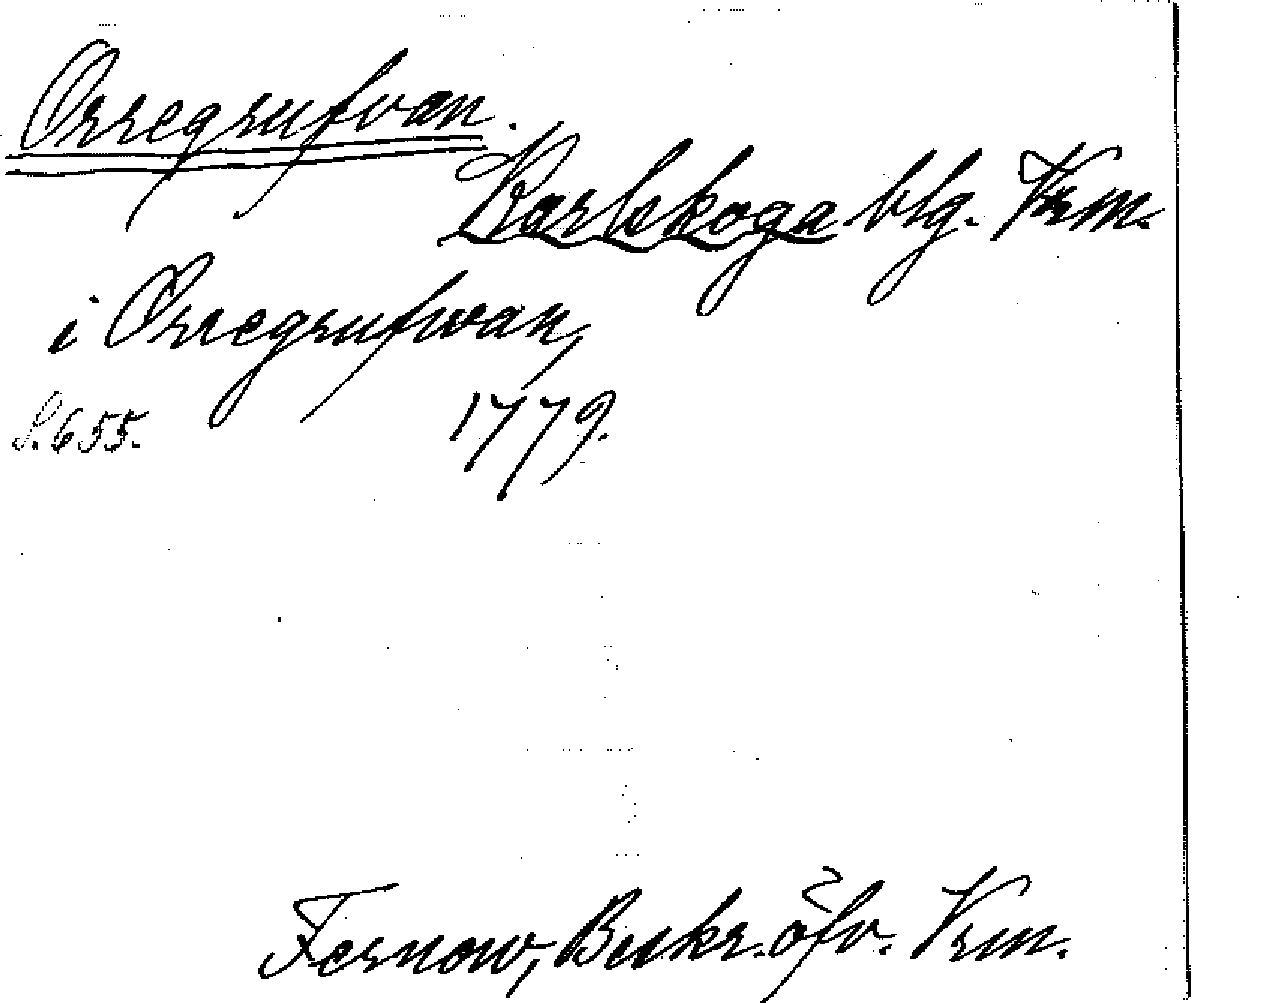 Orregrufvan.
Karlskoga blg. Vrm.
i Orregrufwan,
S. 655. 1779.
Fernow, Beskr. öfv. Vrm.